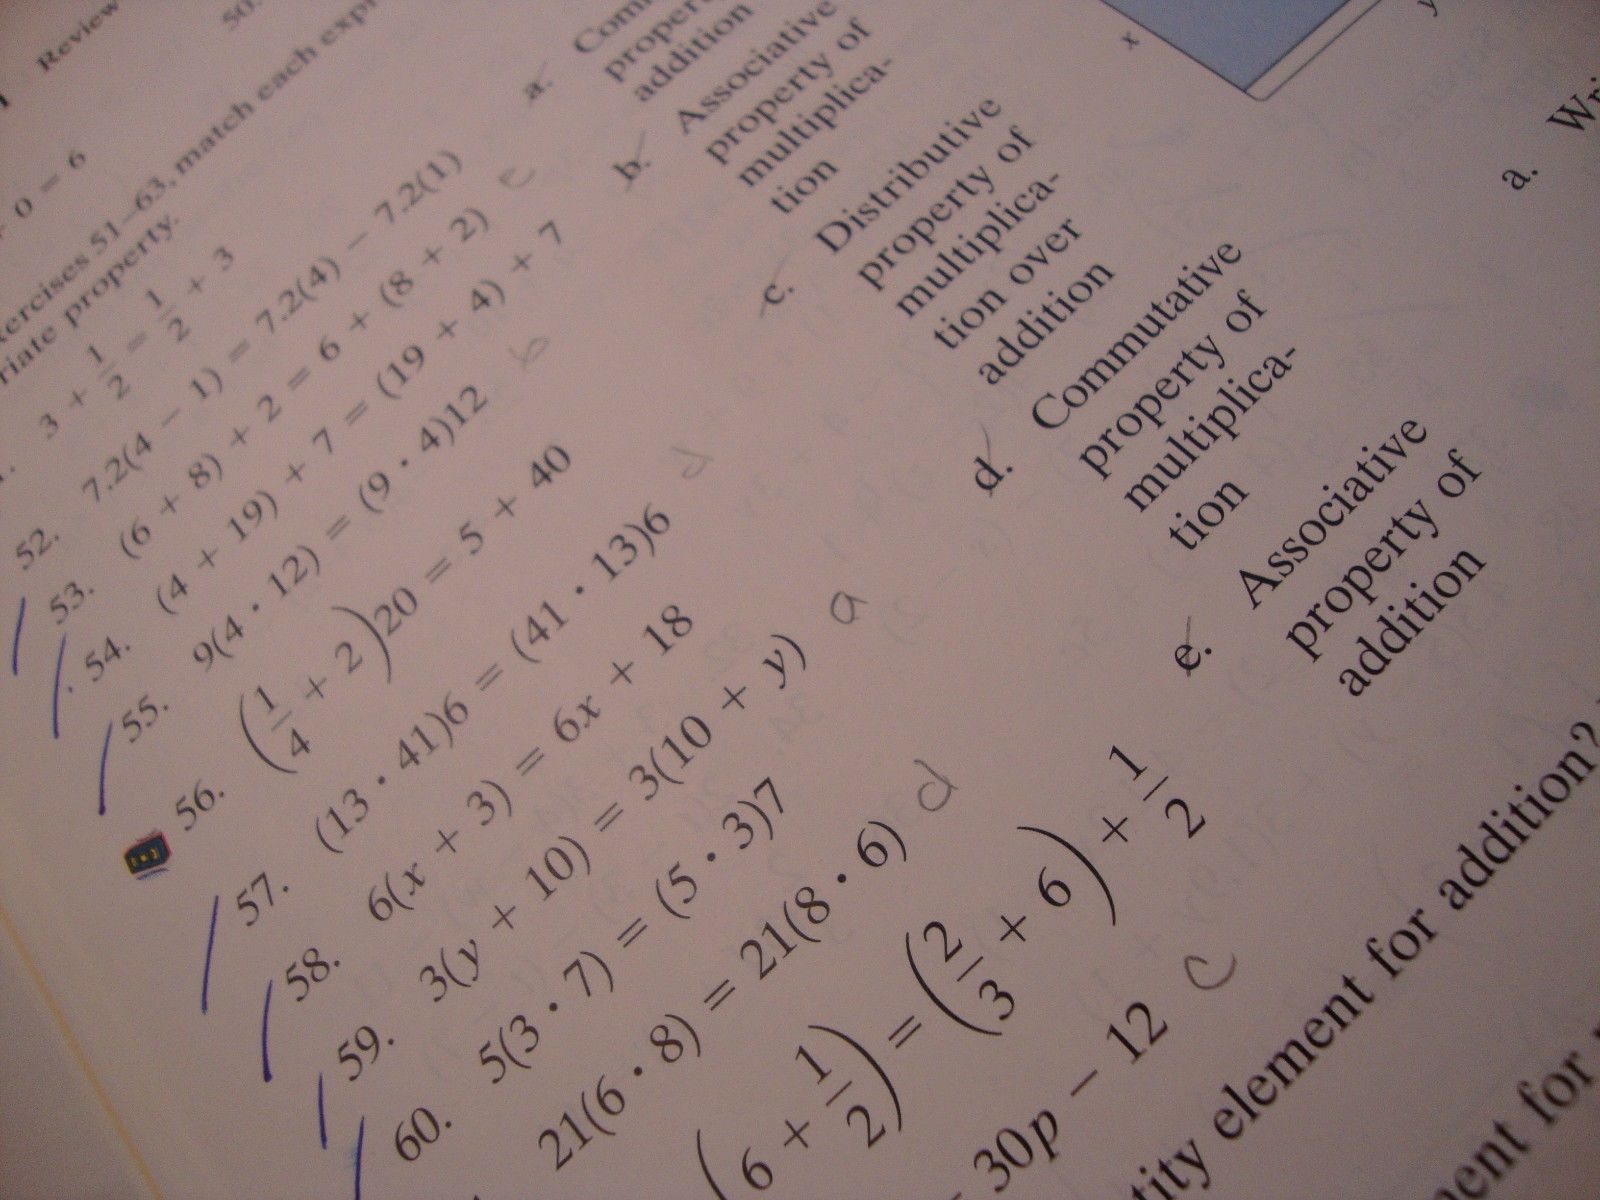 Review
50.
0 = 6
ercises 51–63, match each exp
riate property.
3 + 1/2 = 1/2 + 3
52. 7.2(4 − 1) = 7.2(4) − 7.2(1)
53. (6 + 8) + 2 = 6 + (8 + 2) e
54. (4 + 19) + 7 = (19 + 4) + 7
55. 9(4 · 12) = (9 · 4)12 b
56. (1/4 + 2)20 = 5 + 40
57. (13 · 41)6 = (41 · 13)6 d
58. 6(x + 3) = 6x + 18
59. 3(y + 10) = 3(10 + y) a
60. 5(3 · 7) = (5 · 3)7
21(6 · 8) = 21(8 · 6) d
(6 + 1/2) = (2/3 + 6) + 1/2
30p − 12 c
tity element for addition?
ment for
a. Com
property
addition
b. Associative
property of
multiplica-
tion
c. Distributive
property of
multiplica-
tion over
addition
d. Commutative
property of
multiplica-
tion
e. Associative
property of
addition
x
y
a. Wri